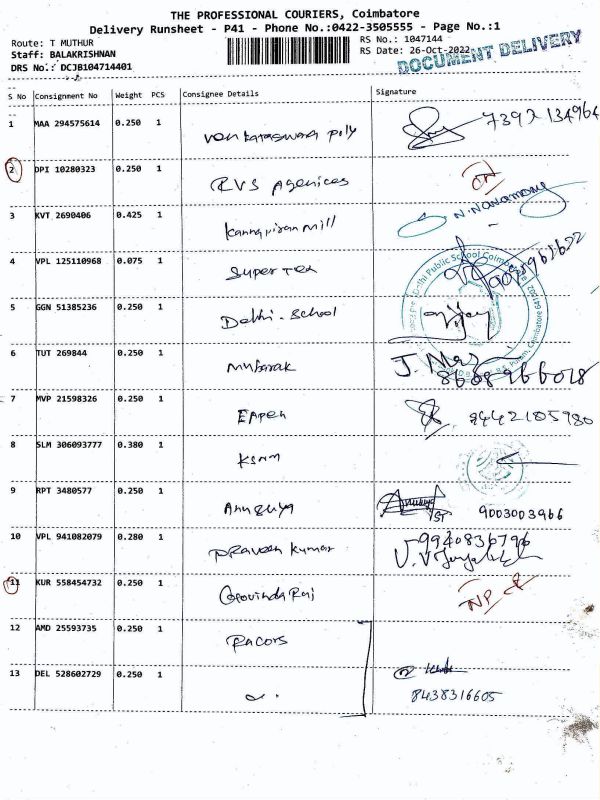 THE PROFESSIONAL COURIERS, Coimbatore
Delivery Runsheet - P41 - Phone No.:0422-3505555 - Page No.:1
Route: T MUTHUR
RS No.: 1047144
Staff: BALAKRISHNAN
RS Date: 26-Oct-2022
DRS No.: DCJB104714401
DOCUMENT DELIVERY
S No Consignment No Weight PCS Consignee Details Signature
1 MAA 294575614 0.250 1 Venkataswara poly
2 DPI 10280323 0.250 1 RVS Agenices
3 KVT 2690406 0.425 1 Kannapiran mill
4 VPL 125110968 0.075 1 Super Tex
5 GGN 51385236 0.250 1 Delhi-School
Delhi Public School Coimbatore
6 TUT 269844 0.250 1 Mubarak 8608966018
7 MVP 21598326 0.250 1 Eppen 9442185980
8 SLM 306093777 0.380 1
9 RPT 3480577 0.250 1 Anusuya 9003003966
10 VPL 941082079 0.280 1 Praveen Kumar 9940836796
11 KUR 558454732 0.250 1 Govinda Raj NP
12 AMD 25593735 0.250 1 Racors
13 DEL 528602729 0.250 1 8438316605